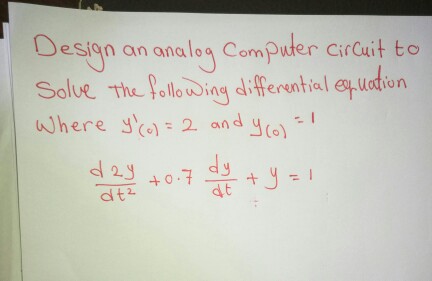 Design an analog Computer circuit to
Solve the following differential equation
Where y'(0) = 2 and y(0) = 1
d2y/dt² + 0.7 dy/dt + y = 1